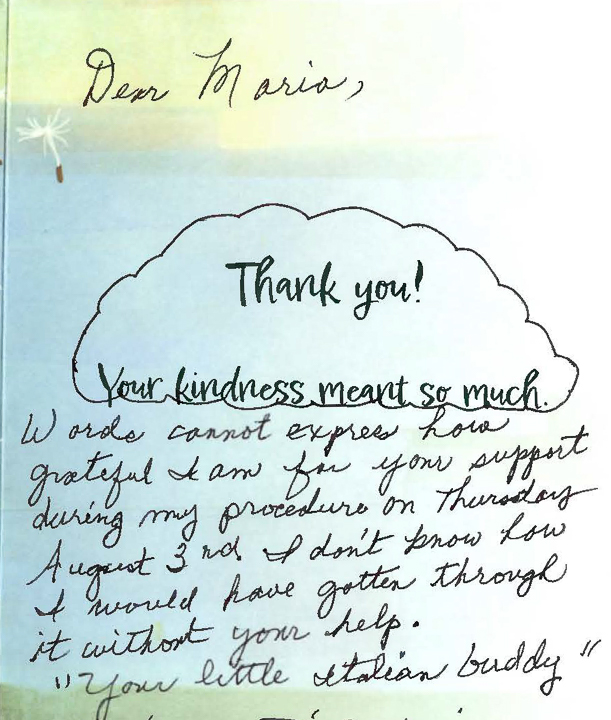 Dear Maria,
Thank you!
Your kindness meant so much.
Words cannot express how
grateful I am for your support
during my procedure on Thursday
August 3rd. I don't know how
I would have gotten through
it without your help.
"Your little Italian buddy"